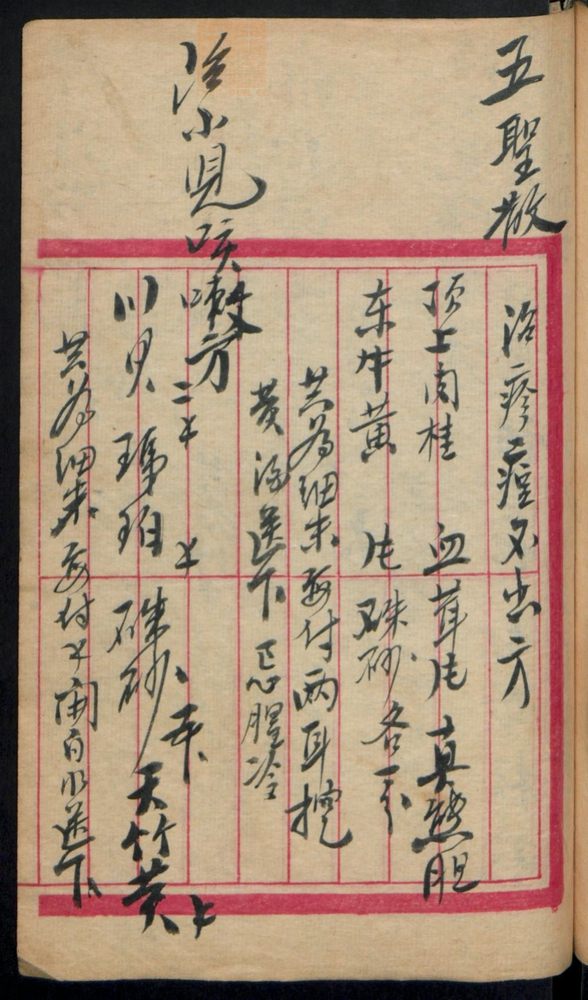 五聖散
治疹痘不出方
頂上肉桂 血茸片 真熊胆
东牛黄 片 硃砂 各一分
共为细末 每付两耳挖
黄酒送下 忌腥冷
治小兒咳嗽方
川貝 二 琥珀 硃砂 五 天竹黄
共为细末 每付 開白水送下